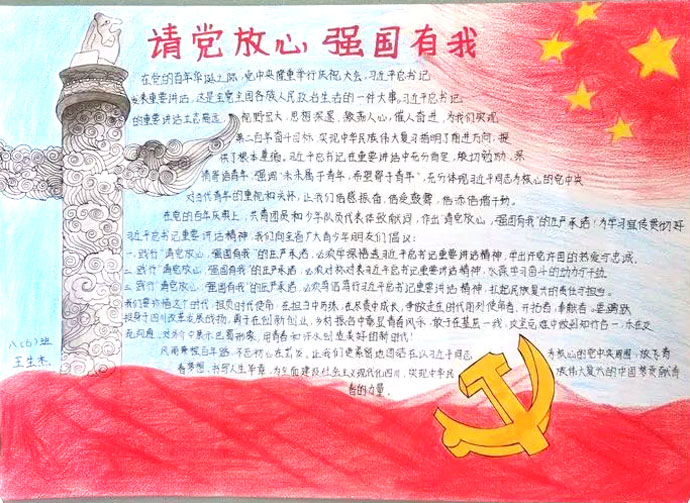 请党放心 强国有我
在党的百年华诞之际，党中央隆重举行庆祝大会，习近平总书记
发表重要讲话，这是全党全国各族人民政治生活的一件大事，习近平总书记
的重要讲话立意高远，视野宏大，思想深邃，振奋人心，催人奋进，为我们实现
第二个百年奋斗目标，实现中华民族伟大复兴指明了前进方向，提
供了根本遵循。习近平总书记在重要讲话中充分肯定，殷切勉励，深
情寄语青年，强调"未来属于青年，希望寄予青年"，充分体现习近平同志为核心的党中央
对当代青年的重视和关怀，让我们倍感振奋，倍受鼓舞，倍添信心
在党的百年庆典上，共青团员和少年队员代表体致献词，作出"请党放心，强国有我"的庄严承诺！为学习宣传贯彻好
习近平总书记重要讲话精神，我们向全省广大青少年朋友们倡议：
一、践行"请党放心，强国有我"的庄严承诺，必须学深悟透习近平总书记重要讲话精神，
二、践行"请党放心，强国有我"的庄严承诺，必须对标对表习近平总书记重要讲话精神，
三、践行"请党放心，强国有我"的庄严承诺，必须笃信笃行习近平总书记重要讲话精神，扛起民族复兴的责任与担当。
我们要珍惜这个时代，担负时代使命，在担当中历练，在尽责中成长，争做走在时代前列
投身于四川改革发展战场，勇于在创新创业，乡村振兴中彰显青春风采，敢于在基层一线，
用青春和汗水创造美好的新时代！
风雨兼程百年路，不忘初心在前发，让我们更紧密地团结在以习近平同志 为核心的党中央周围，放飞青
春梦想，书写人生华章，为全面建设社会主义现代化四川，实现中华民 族伟大复兴的中国梦贡献青
春的力量。
八(6)班
王生杰